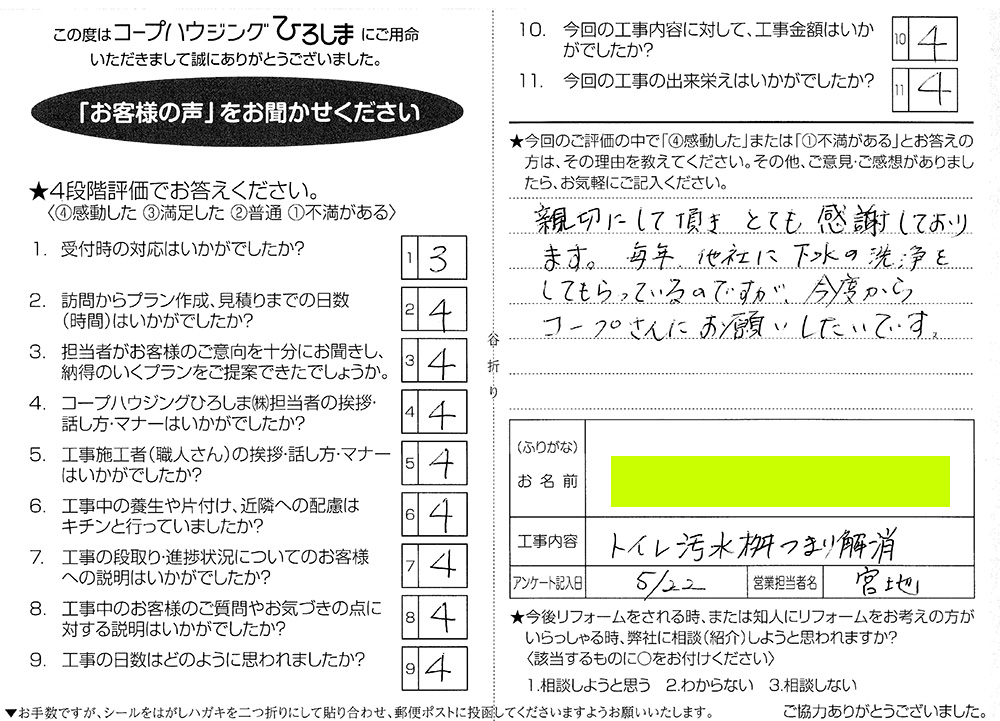 この度はコープハウジングひろしまにご用命
いただきまして誠にありがとうございました。
「お客様の声」をお聞かせください
★4段階評価でお答えください。
〈④感動した ③満足した ②普通 ①不満がある〉
1. 受付時の対応はいかがでしたか?
1 3
2. 訪問からプラン作成、見積りまでの日数
(時間)はいかがでしたか?
2 4
3. 担当者がお客様のご意向を十分にお聞きし、
納得のいくプランをご提案できたでしょうか。
3 4
4. コープハウジングひろしま㈱担当者の挨拶・
話し方・マナーはいかがでしたか?
4 4
5. 工事施工者(職人さん)の挨拶・話し方・マナー
はいかがでしたか?
5 4
6. 工事中の養生や片付け、近隣への配慮は
キチンと行っていましたか?
6 4
7. 工事の段取り・進捗状況についてのお客様
への説明はいかがでしたか?
7 4
8. 工事中のお客様のご質問やお気づきの点に
対する説明はいかがでしたか?
8 4
9. 工事の日数はどのように思われましたか?
9 4
谷折り
10. 今回の工事内容に対して、工事金額はいか
がでしたか?
10 4
11. 今回の工事の出来栄えはいかがでしたか?
11 4
★今回のご評価の中で「④感動した」または「①不満がある」とお答えの
方は、その理由を教えてください。その他、ご意見・ご感想がありまし
たら、お気軽にご記入ください。
親切にして頂き とても 感謝しており
ます。 毎年 他社に 下水の洗浄を
してもらっているのですが、今度から
コープさんに お願いしたいです。
(ふりがな)
お名前
工事内容 トイレ汚水桝つまり解消
アンケート記入日 5/22 営業担当者名 宮地
★今後リフォームをされる時、または知人にリフォームをお考えの方が
いらっしゃる時、弊社に相談(紹介)しようと思われますか?
〈該当するものに○をお付けください〉
1.相談しようと思う 2.わからない 3.相談しない
▼お手数ですが、シールをはがしハガキを二つ折りにして貼り合わせ、郵便ポストに投函してくださいますようお願いいたします。
ご協力ありがとうございました。